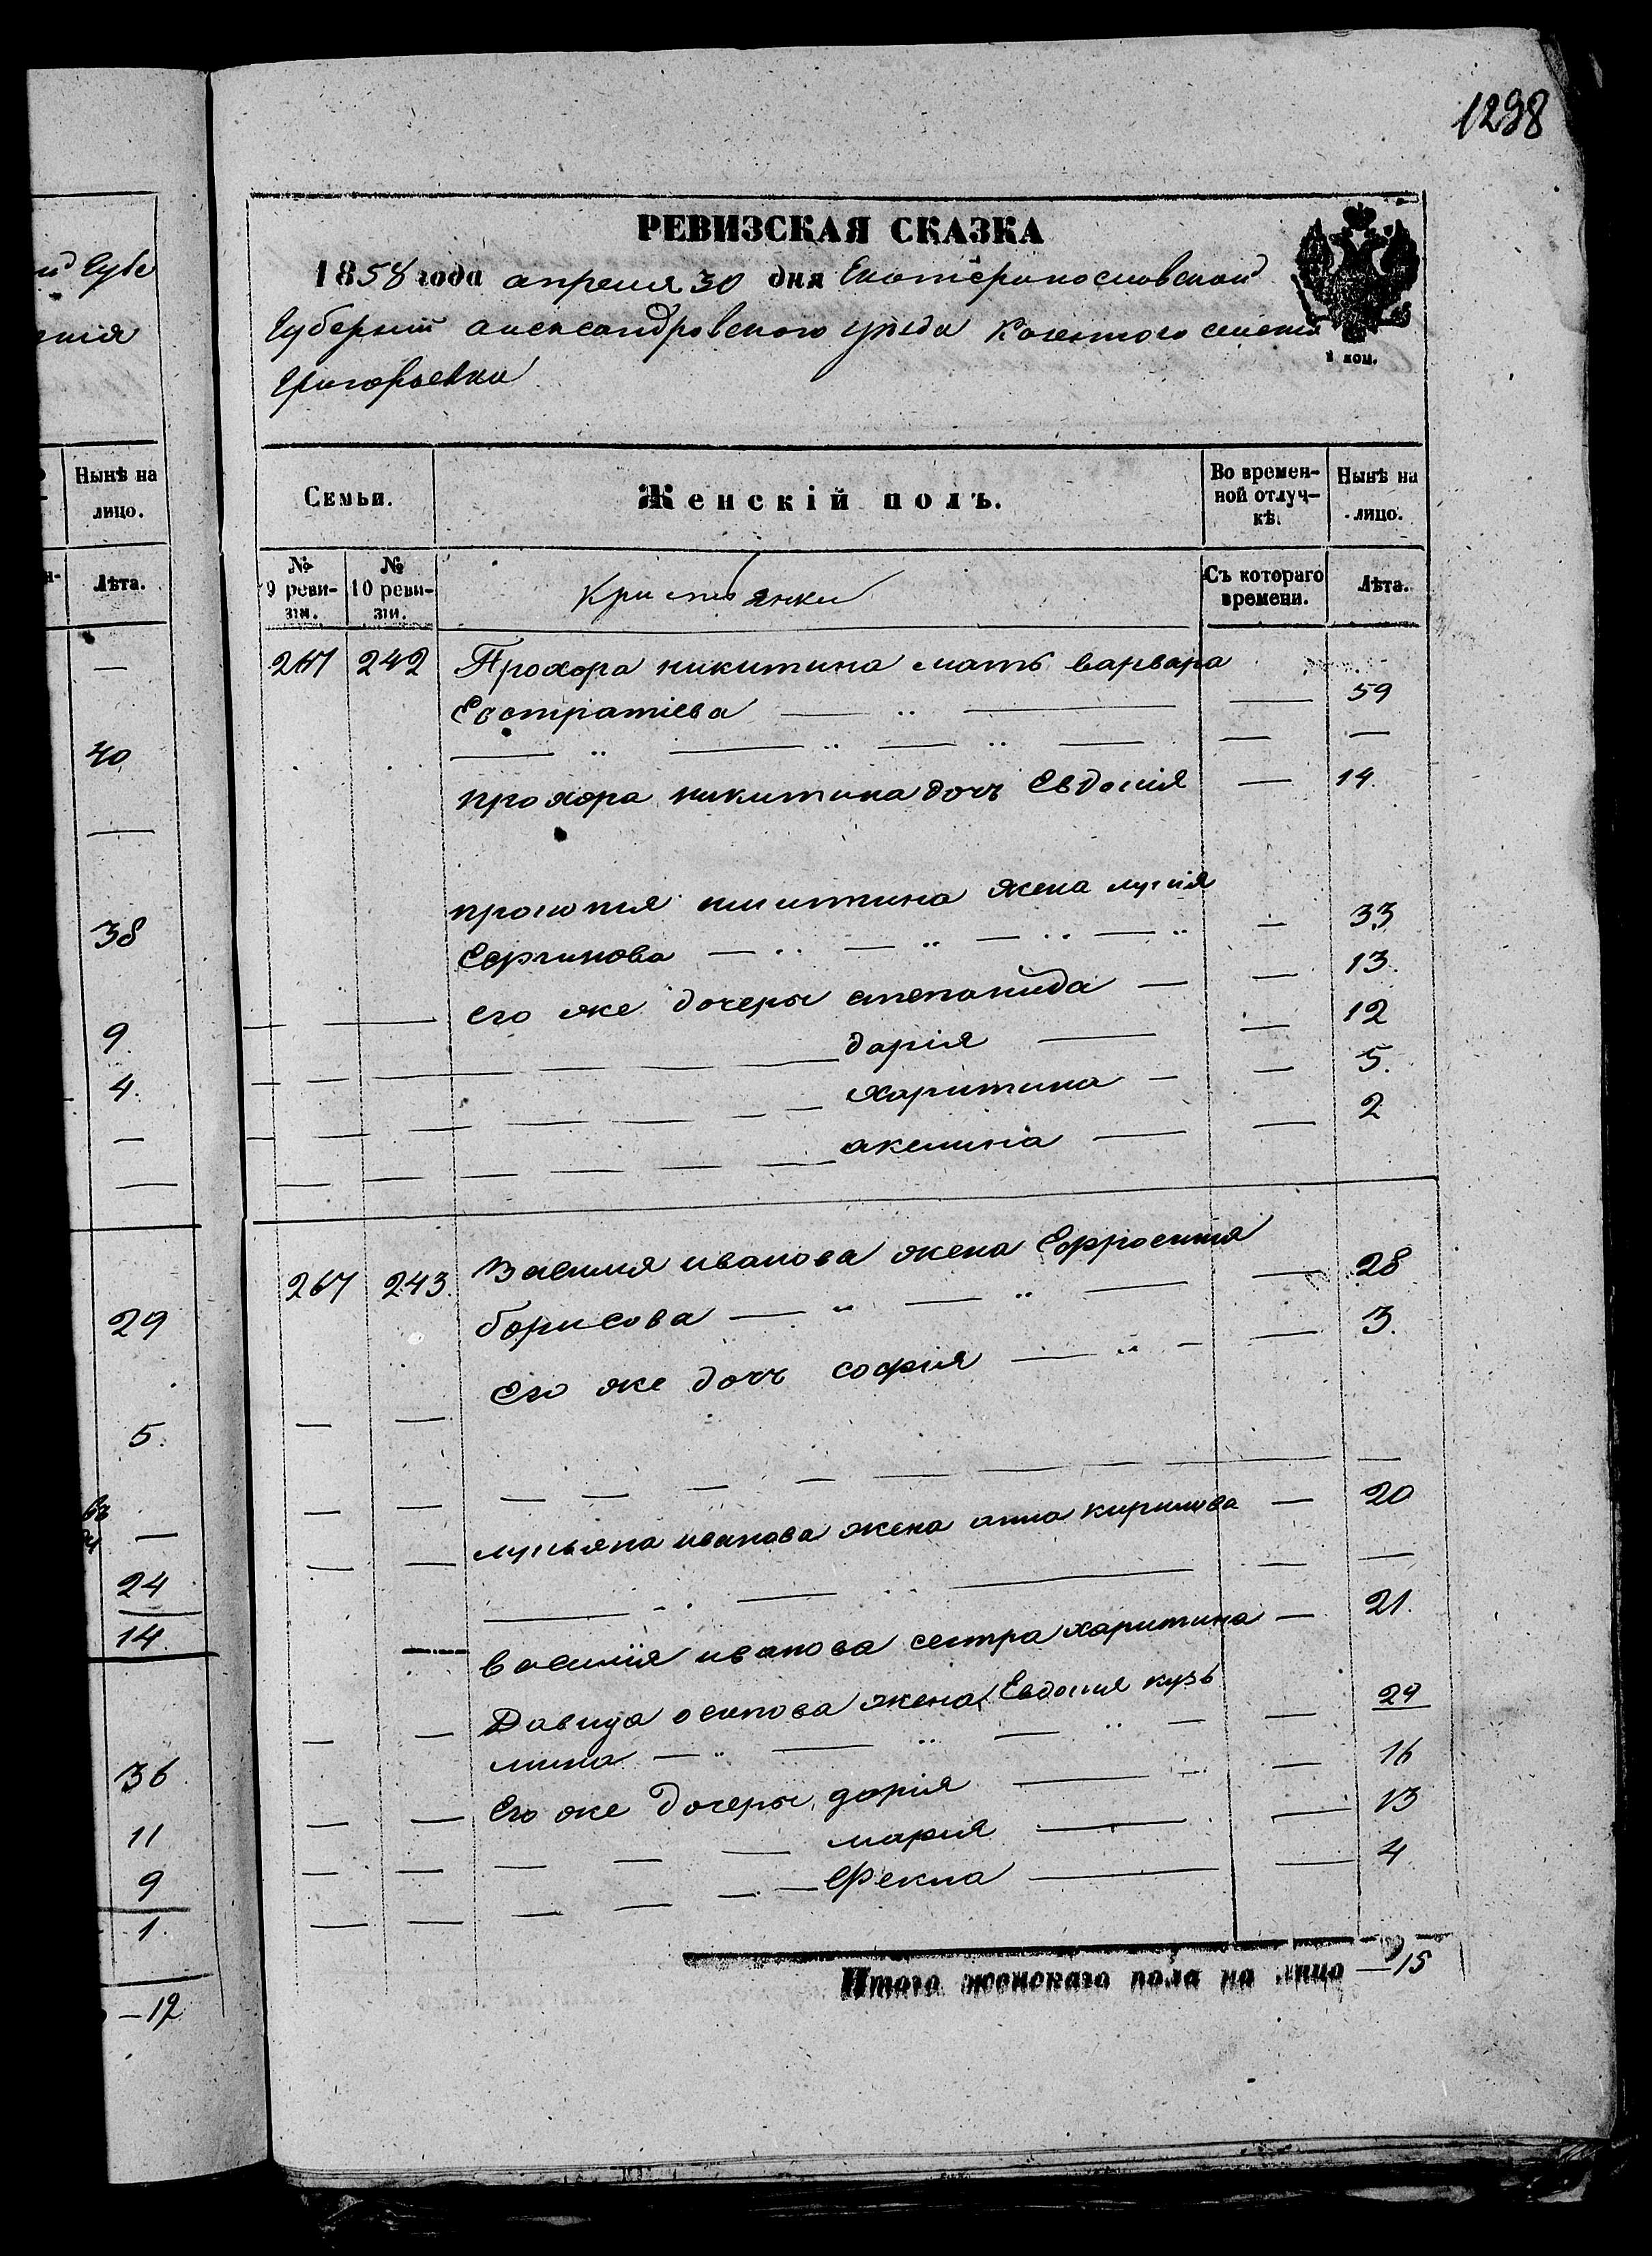 1298
губе
ния
Нынѣ на
лицо.
Лѣта.
—
40
—
38
9.
4.
—
—
29
5.
—
24
14.
36
11
9
1.
—12
РЕВИЗСКАЯ СКАЗКА
1858 года апреля 30 дня Екатеринославской
Губернии александровского уезда Казенного селения
Григорьевки
1 коп.
Семьи. Женскій полъ. Во времен- Нынѣ на
ной отлуч- лицо.
кѣ.
№ № Съ котораго Лѣта.
9 реви- 10 реви- времени.
зіи. зіи.
Кристьянки
267 242 Прохора никитина мать варвара
Евстратіева — — 59
— — — — — —
прохора никитина дочь Евдокія — 14.
прокопія никитина жена лукія
— — — — — 33
его же дочери степанида — — 13.
дарія — — 12
харитина — — 5.
акилина — — 2
267 243. Василия иванова жена Ефросиния
борисова — — — — 28
Его же дочь софия — — — 3.
— — — — — — — —
лукьяна иванова жена анна кирилова — 20
— — — — —
василия иванова сестра харитина — 21.
Давида осипова жена Евдокия кузь
мина — — — — — — 29
Его же дочери дария — — 16
мария — — 13
Фекла — — 4.
Итого женскаго пола на лицо — 15